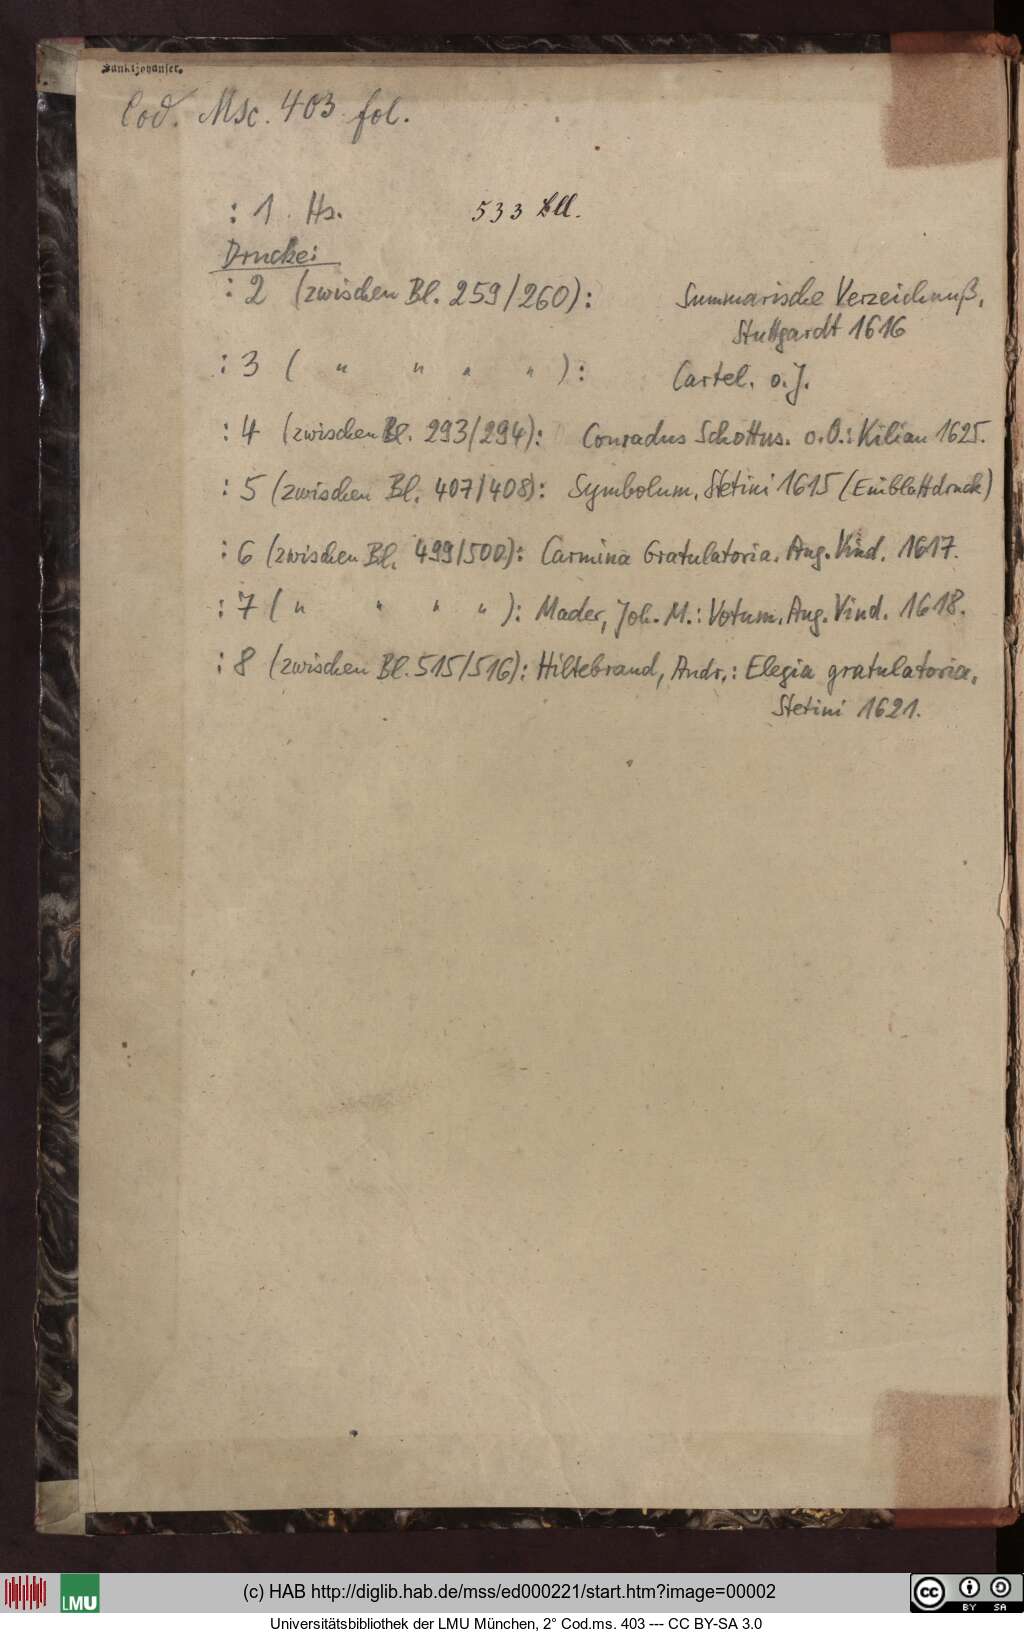 Sanktjohanser.
Cod. Msc. 403 fol.
: 1 Hs. 533 Bll.
Drucke:
: 2 (zwischen Bl. 259/260): Summarische Verzeichnuß,
Stuttgardt 1616
: 3 ( " " " " ): Cartel. o. J.
: 4 (zwischen Bl. 293/294): Conradus Schottus. o. O.: Kilian 1625.
: 5 (zwischen Bl. 407/408): Symbolum, Stetini 1615 (Einblattdruck)
: 6 (zwischen Bl. 499/500): Carmina Gratulatoria. Aug. Vind. 1617.
: 7 ( " " " " ): Mader, Joh. M.: Votum. Aug. Vind. 1618.
: 8 (zwischen Bl. 515/516): Hiltebrand, Andr.: Elegia gratulatoria,
Stetini 1621.
LMU
(c) HAB http://diglib.hab.de/mss/ed000221/start.htm?image=00002
cc BY SA
Universitätsbibliothek der LMU München, 2° Cod.ms. 403 --- CC BY-SA 3.0